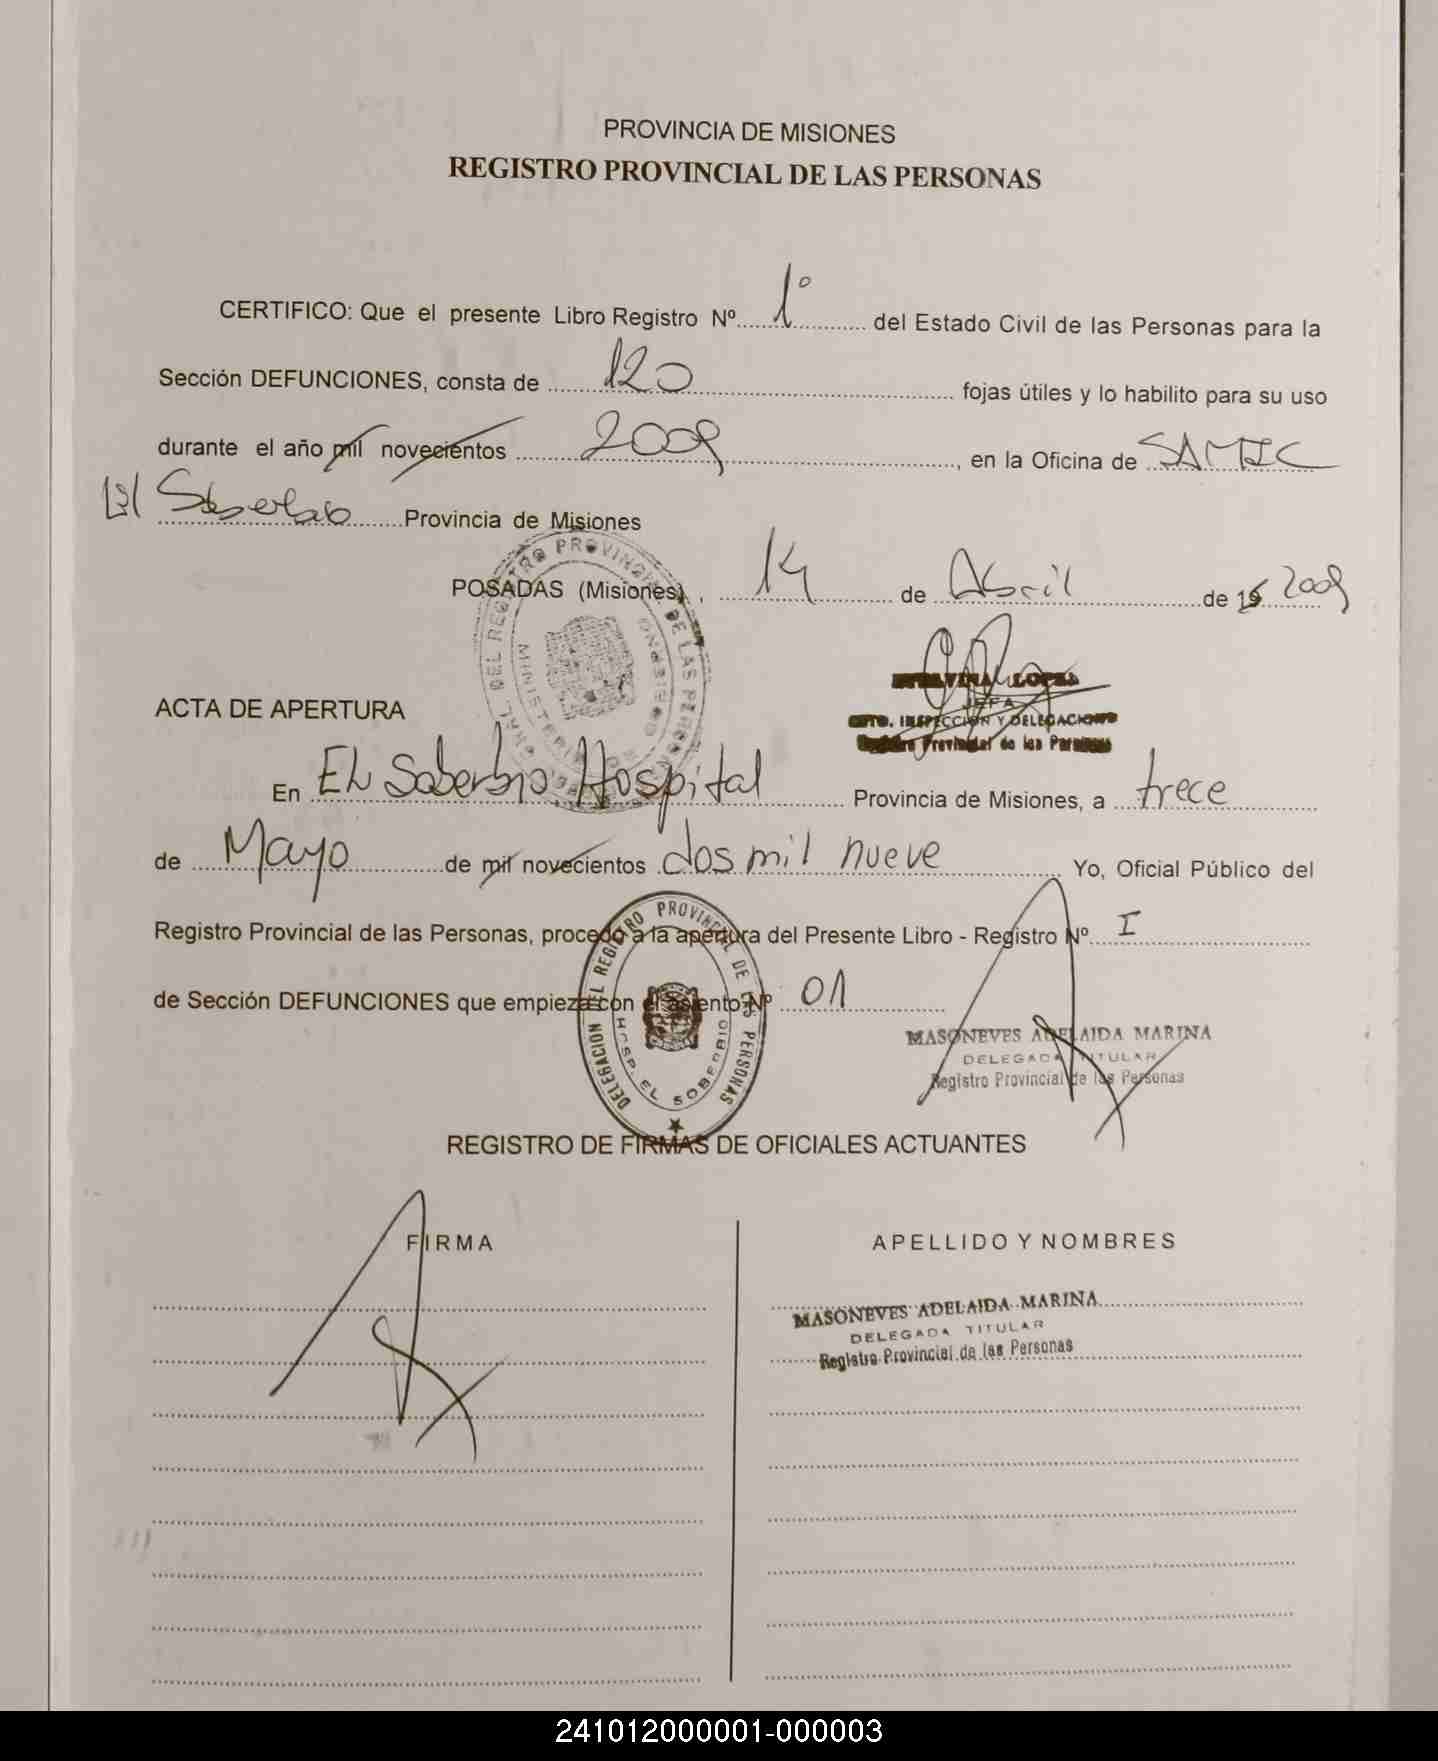 PROVINCIA DE MISIONES
REGISTRO PROVINCIAL DE LAS PERSONAS
CERTIFICO: Que el presente Libro Registro Nº 1º del Estado Civil de las Personas para la
Sección DEFUNCIONES, consta de 120 fojas útiles y lo habilito para su uso
durante el año mil novecientos 2009, en la Oficina de SAMIC
El Soberbio Provincia de Misiones
POSADAS (Misiones), 14 de Abril de 19 2009
DEL REGISTRO PROVINCIAL DE LAS PERSONAS
MINISTERIO DE GOBIERNO
LOPEZ
JEFA
DPTO. INSPECCION Y DELEGACIONES
Registro Provincial de las Personas
ACTA DE APERTURA
En EL Soberbio Hospital Provincia de Misiones, a trece
de Mayo de mil novecientos dos mil nueve Yo, Oficial Público del
Registro Provincial de las Personas, procedo a la apertura del Presente Libro - Registro Nº I
de Sección DEFUNCIONES que empieza con el asiento Nº 01
DELEGACION DEL REGISTRO PROVINCIAL DE LAS PERSONAS
HOSP. EL SOBERBIO
MASONEVES ADELAIDA MARINA
DELEGADA TITULAR
Registro Provincial de las Personas
REGISTRO DE FIRMAS DE OFICIALES ACTUANTES
FIRMA APELLIDO Y NOMBRES
MASONEVES ADELAIDA MARINA
DELEGADA TITULAR
Registro Provincial de las Personas
241012000001-000003